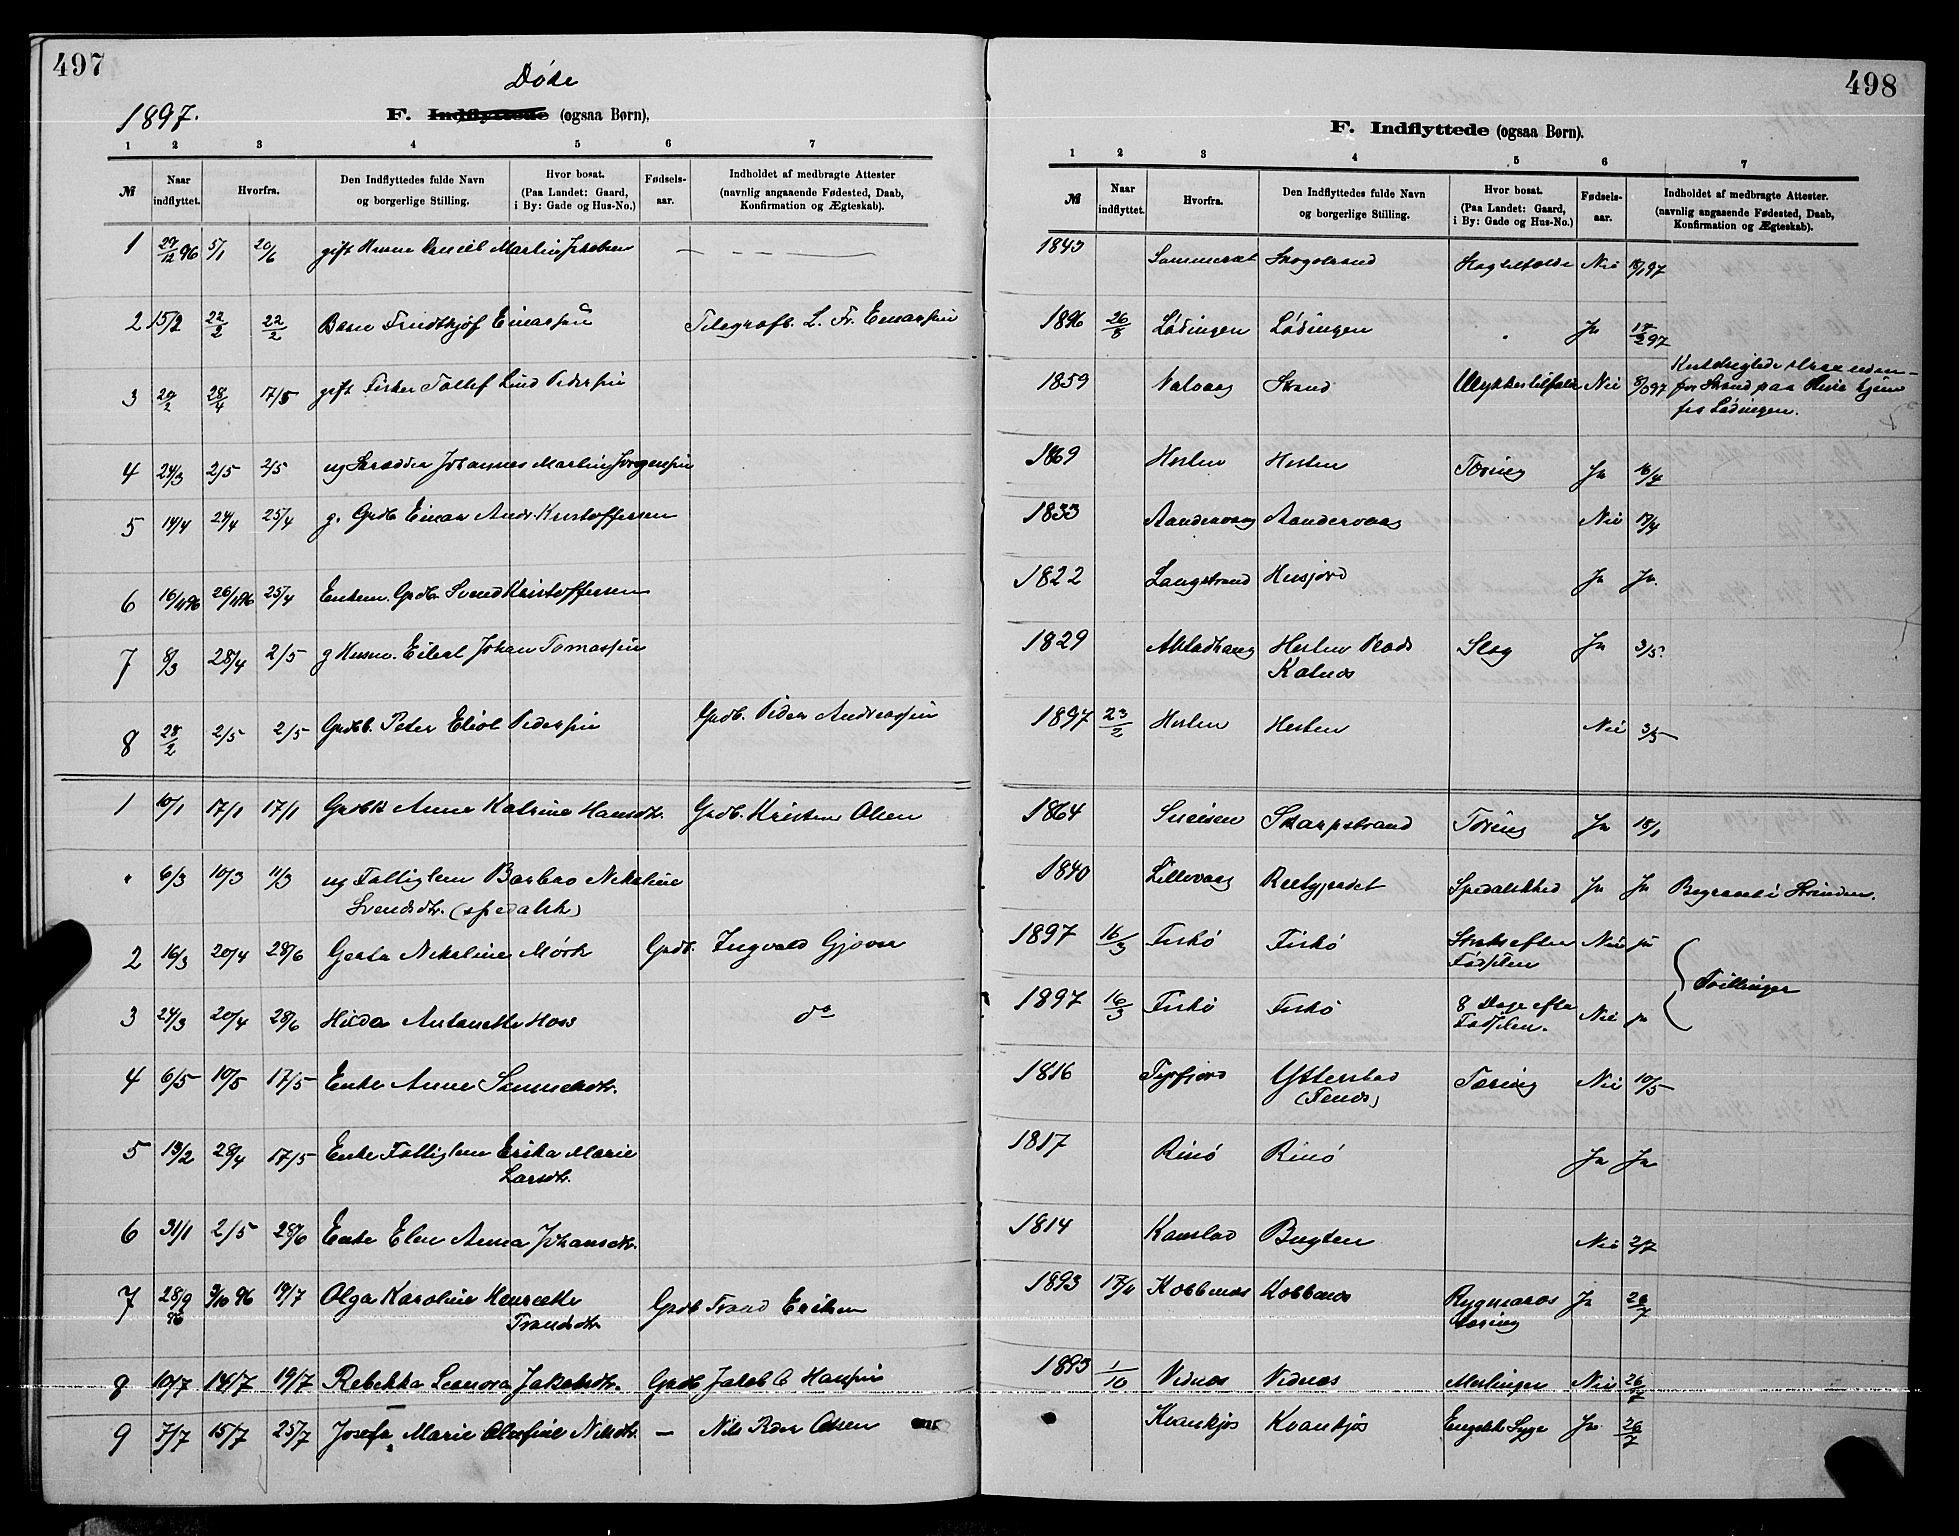 497
Døde
1897.
F. Indflyttede (ogsaa Børn).
1 2 3 4 5 6 7
№ Naar indflyttet. Hvorfra. Den Indflyttedes fulde Navn og borgerlige Stilling. Hvor bosat. (Paa Landet: Gaard, i By: Gade og Hus-No.) Fødsels-aar. Indholdet af medbragte Attester (navnlig angaaende Fødested, Daab, Konfirmation og Ægteskab).
1 29/12 96 5/1 20/6 gift Martin Jakobsen —
2 15/2 22/2 22/2 Barn Fridthjof Einarsen Telegrafb. L. Fr. Einarssen
3 20/2 28/4 17/5 gift Fisker Tollef Lind Pedersen
4 24/3 2/5 2/5 ug Skrædder Johannes Martin Jørgensen
5 14/4 24/4 25/4 g. Grdb. Einar Andr. Kristoffersen
6 16/4 96 26/4 96 25/4 Enkem. Grdb. Svend Kristoffersen
7 8/3 28/4 2/5 g Husm. Eilert Johan Tomassen
8 28/2 2/5 2/5 Grdbb. Peter Eliot Pedersen Grdb. Peder Andreassen
1 10/1 17/1 17/1 Grdbk Anne Katrine Hansdtr. Grdb. Kristen Olsen
" 6/3 10/3 11/3 ug Fattiglem Barbro Nikoline
Svendsdtr. (spedalsk)
2 16/3 20/4 28/6 Gerta Nikoline Mørk Grdb. Ingvald Gjøvær
3 24/3 20/4 28/6 Hilda Antonette Hoss do
4 6/5 10/5 17/5 Enke Anne
5 13/2 28/4 17/5 Enke Fattiglem Erika Marie
Larsdtr.
6 31/1 2/5 28/6 Enke Elen Anna Johansdtr.
7 28/9 96 9/10 96 19/7 Olga Karoline Henriette
Trondsdtr. Grdb Trond Eriksen
8 10/7 14/7 19/7 Rebekka Leonora Jakobsdtr. Grdb Jakob C Hansen
9 7/7 15/7 25/7 Josefa Marie Olufine Nilsdtr. — Nils Peder Olsen
498
F. Indflyttede (ogsaa Børn).
1 2 3 4 5 6 7
№ Naar indflyttet. Hvorfra. Den Indflyttedes fulde Navn og borgerlige Stilling. Hvor bosat. (Paa Landet: Gaard, i By: Gade og Hus-No.) Fødsels-aar. Indholdet af medbragte Attester. (navnlig angaaende Fødested, Daab, Konfirmation og Ægteskab).
1843 Sommerset Skogstrand Nei
1896 26/8 Lødingen Lødingen " Ja 17/2 97
1859 Nalvaag Strand Ulykkestilfælde Nei
for Strand paa Reise hjem
fra Lødingen.
1869 Hesten Hesten Tæring Ja 16/4
1833 Aandervaag Aandervaag Nei 17/4
1822 Langstrand Husjord Ja Ja
1829 Hesten Rods
Kalnes Slag Ja 3/5
1897 23/2 Hesten Hesten Nei 3/5
1864 Sneisen Skarpstrand Tæring Ja 18/1
1840 Lillevaag Spedalskhed Ja Ja Begravet i Strinden.
1897 16/3 Fiskø Fiskø Straks efter
Fødselen Nei ja
Tvillinger
1897 16/3 Fiskø Fiskø 8 Dage efter
Fødselen. Nei ja
1816 Tyrfjord Ytterstad
(Tends) Tæring Nei 10/5
1817 Rinø Rinø Ja Ja
1814 Kanstad Bugten Nei 2/7
1893 17/11 Kobbenes Kobbenes Rygmarvs
tæring Ja 26/7
1893 1/10 Vidnes Vidnes Meslinger Nei 26/7
" Kvankjøs Kvankjøs Engelsk Syge Ja 26/7